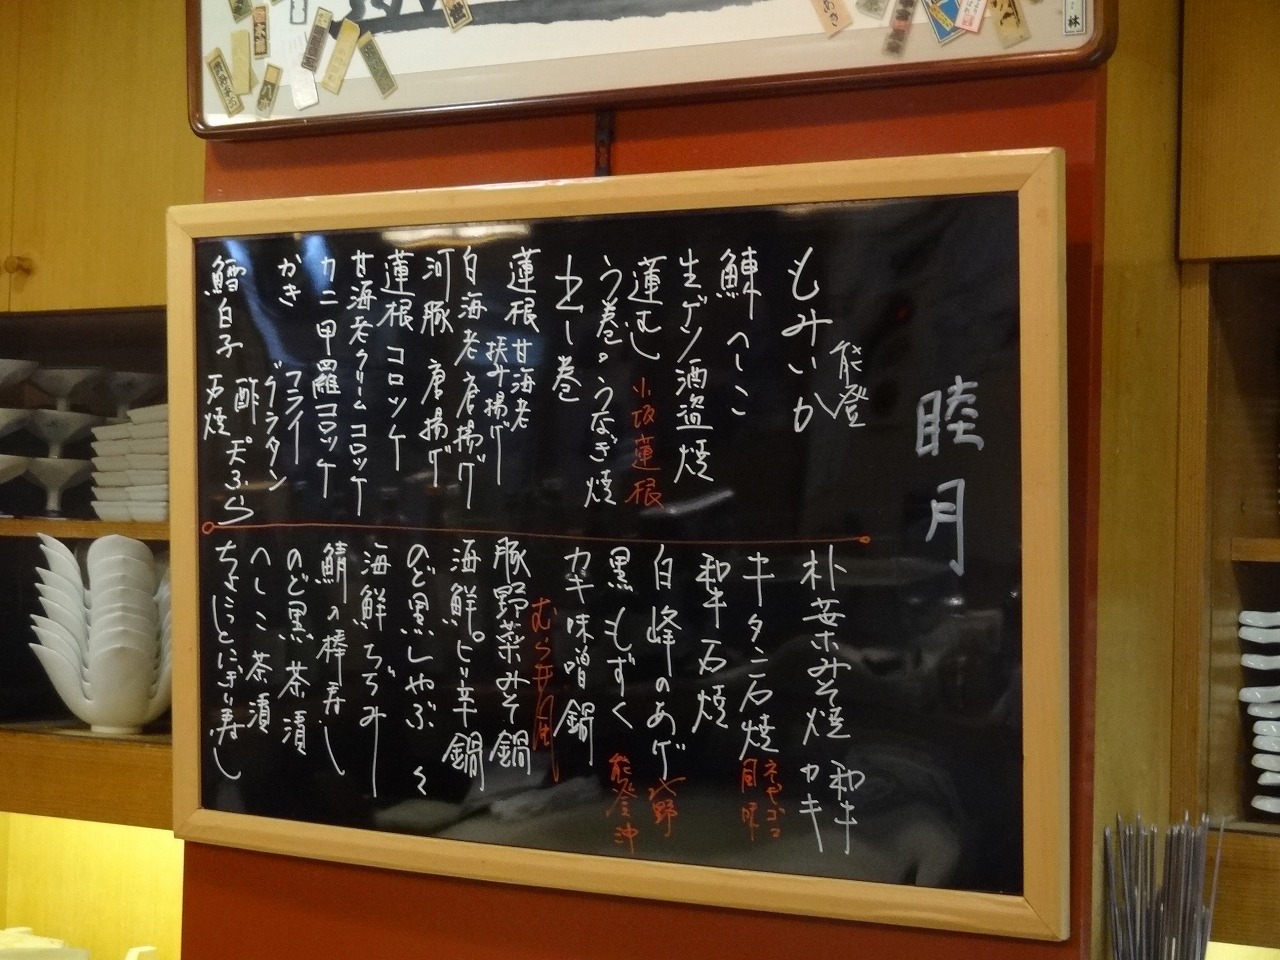 睦月
能登
もみいか
鰊へしこ
生ゲソ酒盗焼
蓮むし
小坂蓮根
う巻。うなぎ焼
出し巻
蓮根 甘海老
挟み揚げ
白海老唐揚げ
河豚 唐揚げ
蓮根コロッケ
甘海老クリームコロッケ
カニ甲羅コロッケ
かき フライ
グラタン
酢
鱈白子 天ぷら
石焼
朴葉みそ焼 和牛
カキ
牛タン石焼
和牛石焼
白峰のあげ
黒もずく
能登沖
カキ味噌鍋
豚野菜みそ鍋
海鮮ピリ辛鍋
のど黒しゃぶ〱
海鮮ちぢみ
鯖の棒寿し
のど黒茶漬
へしこ茶漬
ちょこっとにぎり寿し